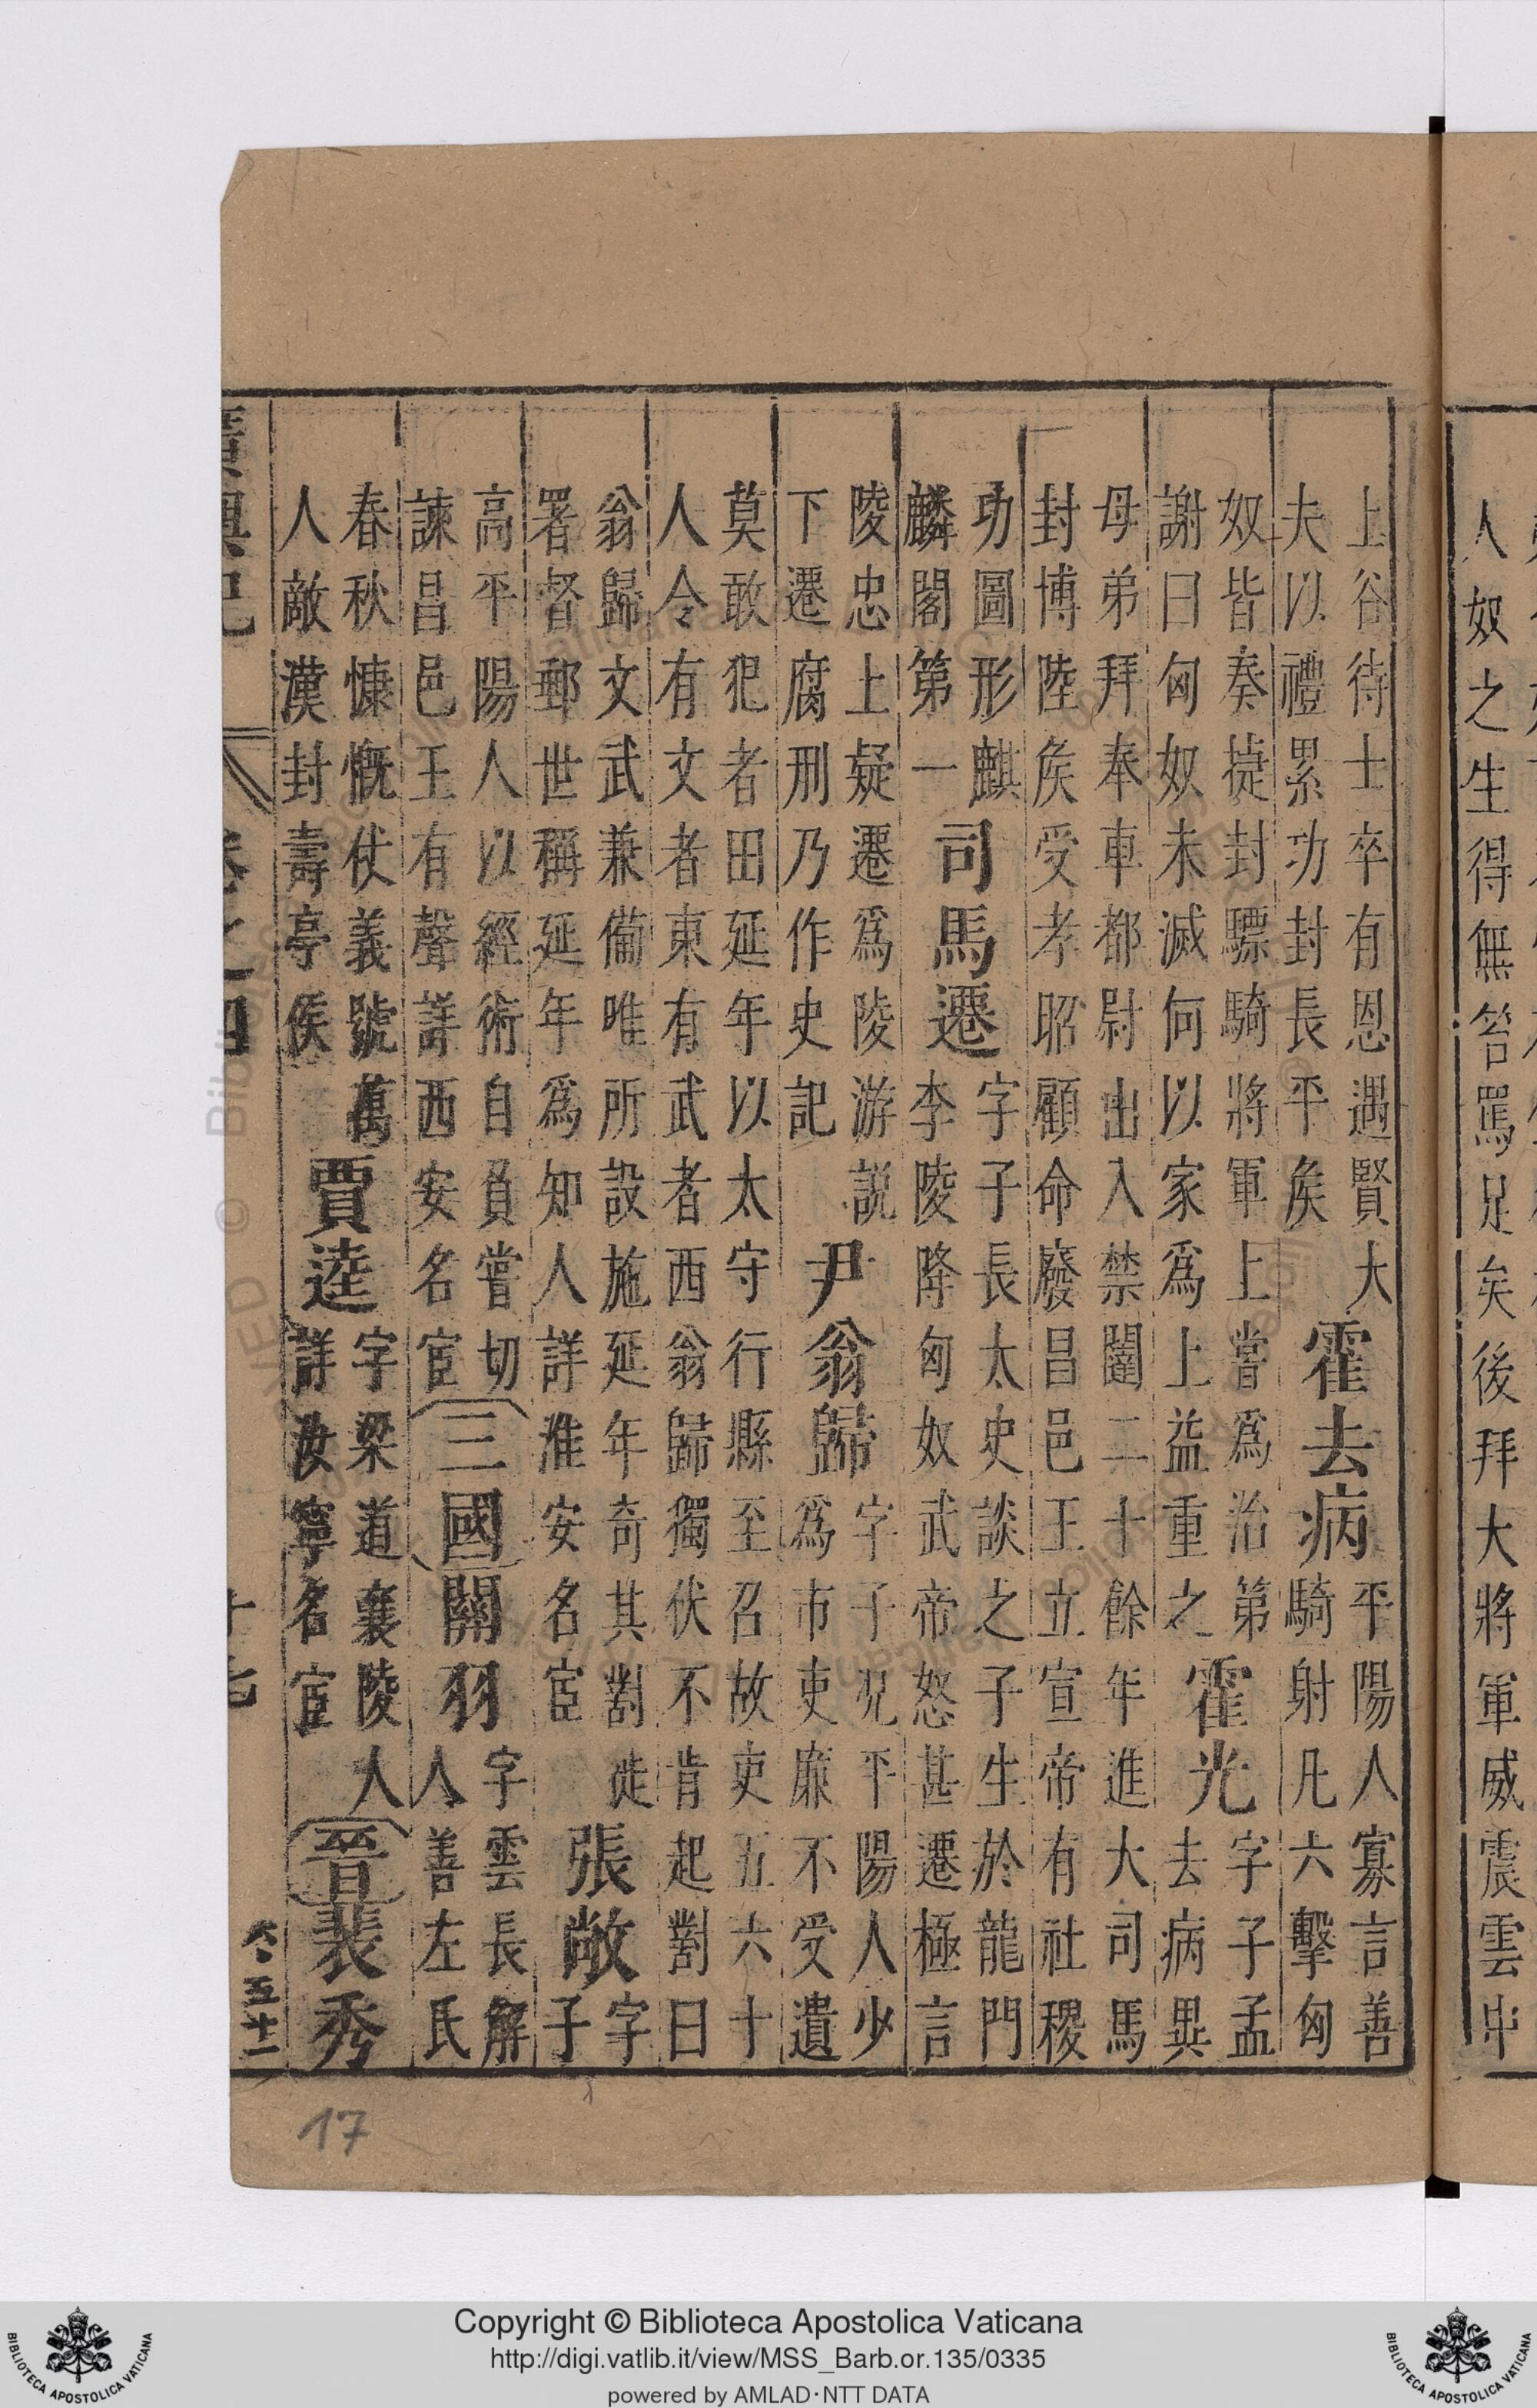 人奴之生得無笞罵足矣後拜大將軍威震雲中
上谷待士卒有恩遇賢大
夫以禮累功封長平矦
霍去病
平陽人寡言善
騎射凡六擊匈
奴皆奏㨗封驃騎將軍上嘗爲治第
謝曰匈奴未滅何以家爲上益重之
霍光
字子孟
去病異
母弟拜奉車都尉出入禁闥二十餘年進大司馬
封博陸矦受孝昭顧命廢昌邑王立宣帝有社稷
功圖形麒
麟閣第一
司馬遷
字子長太史談之子生於龍門
李陵降匈奴武帝怒甚遷極言
陵忠上疑遷爲陵游説
下遷腐刑乃作史記
尹翁歸
字子況平陽人少
爲市吏廉不受遺
莫敢犯者田延年以太守行縣至召故吏五六十
人令有文者東有武者西翁歸獨伏不肯起對曰
翁歸文武兼備唯所設施延年奇其對徙
署督郵世稱延年爲知人詳淮安名宦
張敞
字
子
高平陽人以經術自負嘗切
諫昌邑王有聲詳西安名宦
三國
關羽
字雲長解
人善左氏
春秋慷慨仗義號萬
人敵漢封壽亭侯
賈逵
字梁道襄陵人
詳汝寧名宦
晉
裴秀
廣輿記 卷之四 十七
五十二
17
Copyright © Biblioteca Apostolica Vaticana
http://digi.vatlib.it/view/MSS_Barb.or.135/0335
powered by AMLAD·NTT DATA
BIBLIOTECA APOSTOLICA VATICANA
BIBLIOTECA APOSTOLICA VATICANA